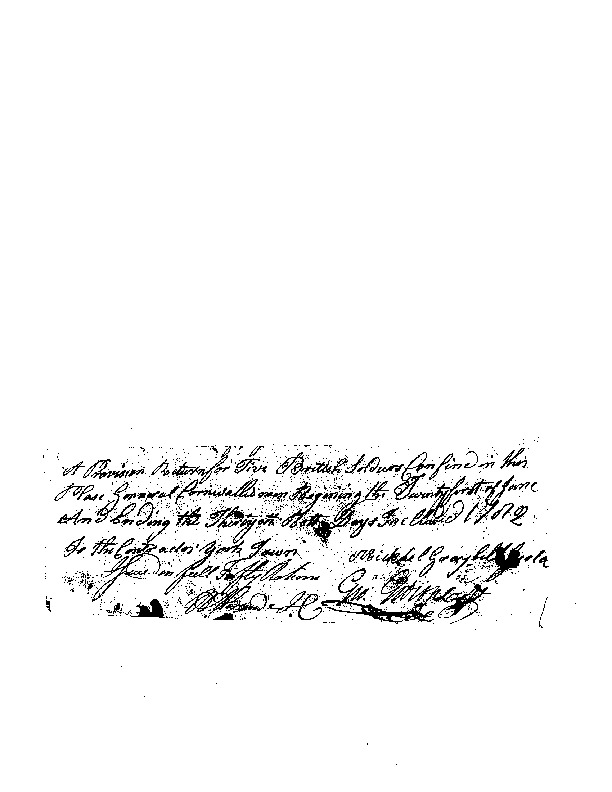 A Provision Return for Five British Soldiers Confined in this
Place General Cornwallis men Begining the Twenty first of June
And Ending the Thirtyeth Both Days Included 1782
To the Contractor York Town Michael Graybell
Issued in full Rations
Geo.